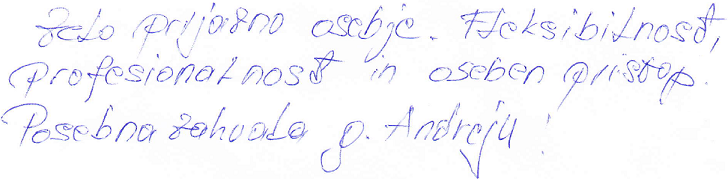 Zelo prijazno osebje. Fleksibilnost,
profesionalnost in oseben pristop.
Posebna zahvala g. Andreju!